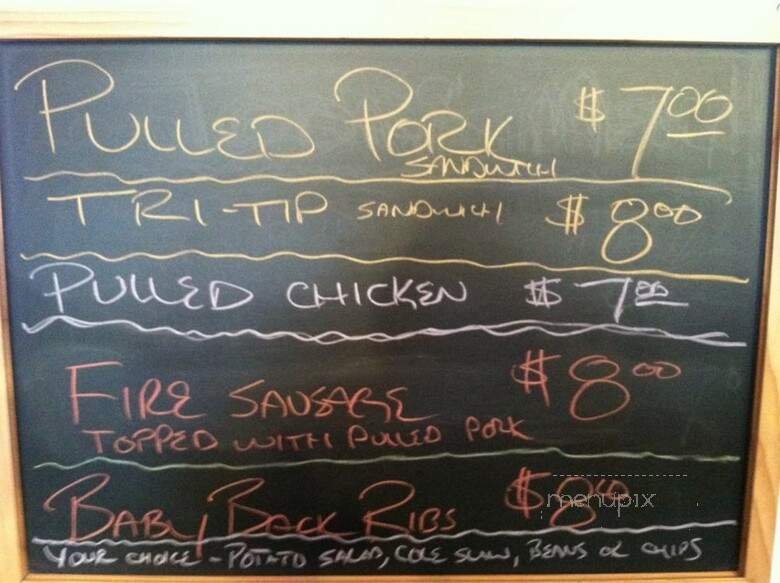 PULLED PORK SANDWICH $7.00
TRI-TIP SANDWICH $8.00
PULLED CHICKEN $7.00
FIRE SAUSAGE $8.00
TOPPED WITH PULLED PORK
BABY BACK RIBS $8.00
menupix
YOUR CHOICE - POTATO SALAD, COLE SLAW, BEANS OR CHIPS